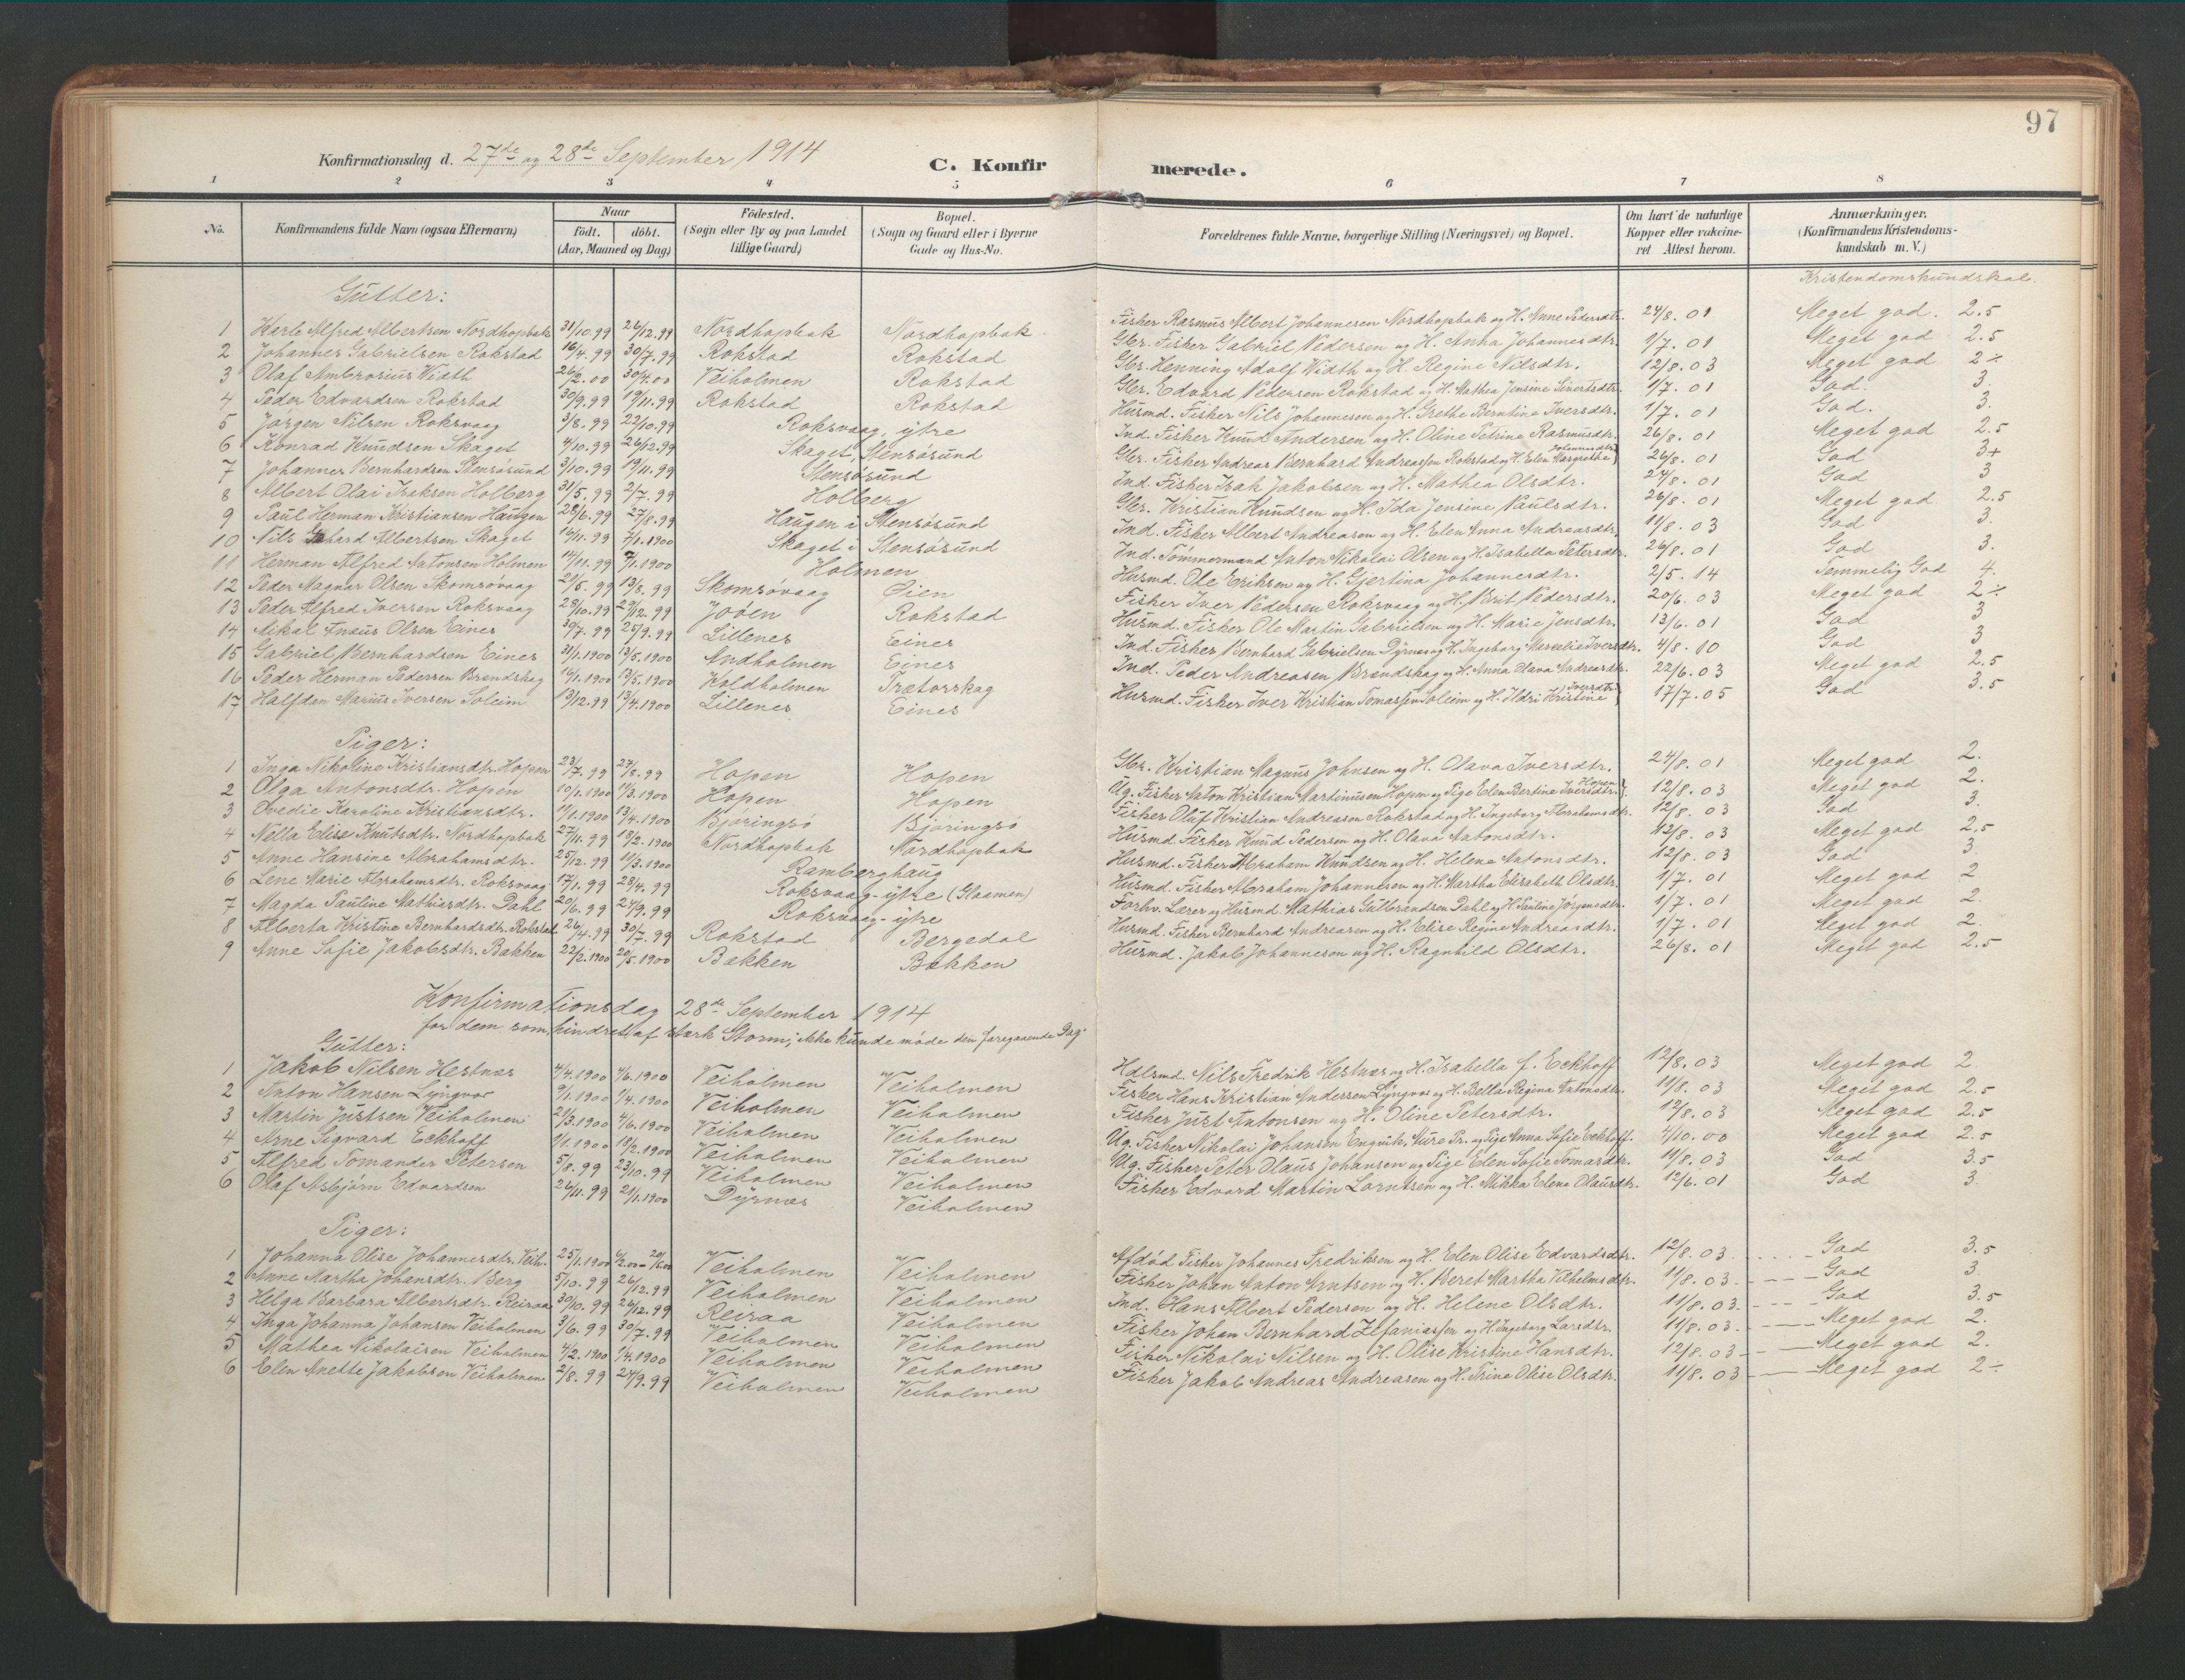 97
Konfirmationsdag d. 27de og 28de September 1914
C. Konfirmerede.
1 2 3 4 5 6 7 8
No. Konfirmandens fulde Navn (ogsaa Efternavn) Naar födt. döbt. (Aar, Maaned og Dag) Födested. (Sogn eller By og paa Landet tillige Gaard) Bopæl. (Sogn og Gaard eller i Byerne Gade og Hus-No. Forældrenes fulde Navne, borgerlige Stilling (Næringsvei) og Bopæl. Om havt de naturlige Kopper eller vakcineret Attest herom. Anmærkninger, (Konfirmandens Kristendomskundskab m. V.)
Kristendomskundskab.
Gutter:
1 Karle Alfred Albertsen Nordhopbak 31/10.99 26/12.99 Nordhopbak Nordhopbak Fisker Rasmus Albert Johannesen Nordhopbak og H. Anne Pedersdtr. 24/8.01 Meget god. 2.5
2 Johannes Gabrielsen Rokstad 16/4.99 30/7.99 Rokstad Rokstad Gbr. Fisker Gabriel Pedersen og H. Anna Johannesdtr. 1/7.01 Meget god 2.5
3 Olaf Ambrosius Width 26/2.00 30/4.00 Veiholmen Rokstad Gbr. Henning Adolf Width og H. Regine Nilsdtr. 12/8.03 Meget god 2÷
4 Peder Edvardsen Rokstad 30/9.99 19/11.99 Rokstad Rokstad Gbr. Edvard Pedersen Rokstad og H. Mathea Jensine Sivertsdtr. 1/7.01 God. 3.
5 Jørgen Nilsen Roksvaag 3/8.99 22/10.99 Roksvaag, ytre Husmd. Fisker Nils Johannesen og H. Grethe Berntine Iversdtr. 1/7.01 God. 3.
6 Konrad Knudsen Skaget 4/10.99 26/12.99 Skaget, Stensøsund Ind. Fisker Knud Andersen og H. Oline Petrine Rasmusdtr. 26/8.01 Meget god 2.5
7 Johannes Bernhardsen Stensøsund 3/10.99 19/11.99 Stensøsund Gbr. Fisker Andreas Bernhard Andreassen Rokstad og H. Elen Margrethe Johannesdtr. 26/8.01 God 3+
8 Albert Olai Isaksen Holberg 31/5.99 2/7.99 Holberg Ind. Fisker Isak Jakobsen og H. Mathea Olsdtr. 24/8.01 God 3
9 Paul Herman Kristiansen Haugen 28/6.99 27/8.99 Haugen i Stensøsund Gbr. Kristian Knudsen og H. Ida Jensine Paulsdtr. 26/8.01 Meget god 2.5
10 Nils Albertsen Skaget 16/11.99 7/1.1900 Skaget i Stensøsund Ind. Fisker Albert Andreasen og H. Elen Anna Andreasdtr. 11/8.03 God 3.
11 Herman Alfred Antonsen Holmen 14/11.99 7/1.1900 Holmen Ind. Tømmermand Anton Nikolai Olsen og H. Isabella Petersdtr. 26/8.01 God 3.
12 Peder Magnar Olsen Skomsøvaag 21/5.99 13/8.99 Skomsøvaag Øien Husmd. Ole Eriksen og H. Gjertina Johannesdtr. 2/5.14 Temmelig God 4.
13 Peder Alfred Iversen Roksvaag 28/10.99 29/12.99 Joøen Rokstad Fisker Iver Pedersen Roksvaag og H. Brit Pedersdtr. 20/6.03 Meget god 2÷
14 Mikal Olsen Eines 30/7.99 25/9.99 Lillenes Eines Husmd. Fisker Ole Martin Gabrielsen og H. Marie Jensdtr. 13/6.01 God 3
15 Gabriel Bernhardsen Eines 31/1.1900 13/5.1900 Andholmen Eines Ind. Fisker Bernhard Gabrielsen Dyrnes og H. Ingeborg Marselie Iversdtr. 4/8.10 God 3
16 Peder Herman Pedersen Brandskag 14/1.1900 13/5.1900 Koldholmen Trætorskag Ind. Peder Andreasen Brandskag og H. Anna Olava Andreasdtr. 22/6.03 Meget god 2.5
17 Halfdan Marius Iversen Soleim 13/12.99 13/4.1900 Lillenes Eines Husmd. Fisker Iver Kristian Tomassen Soleim og H. Ildri Kristine Iversdtr. 17/7.05 God 3.5
Piger:
1 Inga Nikoline Kristiansdtr. Hopen 23/7.99 27/8.99 Hopen Hopen Gbr. Kristian Magnus Johnsen og H. Olava Iversdtr. 24/8.01 Meget god 2.
2 Olga Antonsdtr. Hopen 10/1.1900 11/3.1900 Hopen Hopen Ug. Fisker Anton Kristian Martinusen Hopen og Pige Elen Bertine Iversdtr. Hopen 12/8.03 Meget god 2.
3 Ovedie Karoline Kristiansdtr. 11/1.1900 13/4.1900 Bjøringsø Bjøringsø Fisker Oluf Kristian Andreasen Rokstad og H. Ingeborg Abrahamsdtr. 12/8.03 God 3.
4 Nella Elise Knutsdtr. Nordhopbak 27/11.99 18/2.1900 Nordhopbak Nordhopbak Husmd. Fisker Knud Pedersen og H. Olava Antonsdtr. 12/8.03 Meget god 2.5
5 Anne Hansine Abrahamsdtr. 25/12.99 11/3.1900 Ramberghaug Husmd. Fisker Abraham Knudsen og H. Helene Antonsdtr. 12/8.03 God 3.
6 Lene Marie Abrahamsdtr. Roksvaag 17/1.99 23/4.99 Roksvaag-ytre (Glaamen) Husmd. Fisker Abraham Johannesen og H. Martha Elisabeth Olsdtr. 1/7.01 Meget god 2
7 Magda Pauline Mathiasdtr. Dahl 20/6.99 24/9.99 Roksvaag-ytre Forhv. Lærer og Husmd. Mathias Gulbrandsen Dahl og H. Pauline Jørgensdtr. 1/7.01 Meget god 2.
8 Alberta Kristine Bernhardsdtr. Rokstad 26/4.99 30/7.99 Rokstad Bergedal Husmd. Fisker Bernhard Andreasen og H. Elise Regine Andreasdtr. 1/7.01 Meget god 2.
9 Anne Sofie Jakobsdtr. Bakken 22/2.1900 20/5.1900 Bakken Bakken Husmd. Jakob Johannesen og H. Ragnhild Olsdtr. 26/8.01 Meget god 2.5
Konfirmationsdag 28de September 1914
for dem som, hindret af stærk Storm, ikke kunde møde den foregaaende Dag.
Gutter:
1 Jakob Nilsen Hestnes 4/4.1900 4/6.1900 Veiholmen Veiholmen Hdlsmd. Nils Fredrik Hestnes og H. Isabella f. Eckhoff 12/8.03 Meget god 2
2 Anton Hansen Lyngvær 9/1.1900 1/4.1900 Veiholmen Veiholmen Fisker Hans Kristian Andersen Lyngvær og H. Bella Regina Antonsdtr. 11/8.03 Meget god 2.5
3 Martin Justsen Veiholmen 21/3.1900 4/6.1900 Veiholmen Veiholmen Fisker Just Antonsen og H. Oline Petersdtr. 12/8.03 Meget god 2.5
4 Arne Sigvard Eckhoff 1/1.1900 18/2.1900 Veiholmen Veiholmen Ug. Fisker Nikolai Johansen Engvik, Aure Pr. og Pige Anna Sofie Eckhoff. 4/10.00 Meget god 2.5
5 Alfred Tomander Petersen 5/8.99 23/10.99 Veiholmen Veiholmen Ug. Fisker Peter Olaus Johansen og Pige Elen Sofie Tomasdtr. 11/8.03 God 3.5
6 Olaf Asbjørn Edvardsen 26/11.99 21/1.1900 Dyrnæs Veiholmen Fisker Edvard Martin Lorntsen og H. Mikka Elena Olausdtr. 12/6.01 God 3.
Piger:
1 Johanna Olise Johannesdtr. Veih. 25/1.1900 Veiholmen Veiholmen Afdød Fisker Johannes Fredriksen og H. Elen Olise Edvardsdtr. 12/8.03 God 3.5
2 Anne Martha Johansdtr. Berg 5/10.99 26/12.99 Veiholmen Veiholmen Fisker Johan Anton Arntsen og H. Beret Martha Vilhelmsdtr. 11/8.03 God 3
3 Helga Barbara Albertsdtr. Reiraa 30/10.99 26/12.99 Reiraa Veiholmen Ind. Hans Albert Pedersen og H. Helene Olsdtr. 11/8.03 God 3.5
4 Inga Johanna Johansen Veiholmen 3/6.99 30/7.99 Veiholmen Veiholmen Fisker Johan Bernhard Zefaniassen og H. Ingeborg Larsdtr. 11/8.03 Meget god 2.
5 Mathea Nikolaisen Veiholmen 4/2.1900 1/4.1900 Veiholmen Veiholmen Fisker Nikolai Nilsen og H. Olise Kristine Hansdtr. 12/8.03 Meget god 2.
6 Elen Anette Jakobsen Veiholmen 2/8.99 24/9.99 Veiholmen Veiholmen Fisker Jakob Andreas Andreasen og H. Trine Olise Olsdtr. 11/8.03 Meget god 2÷